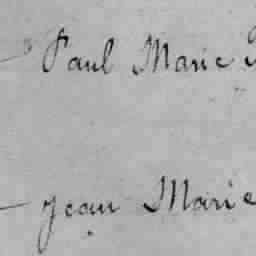 Paul Marie
Jean Marie